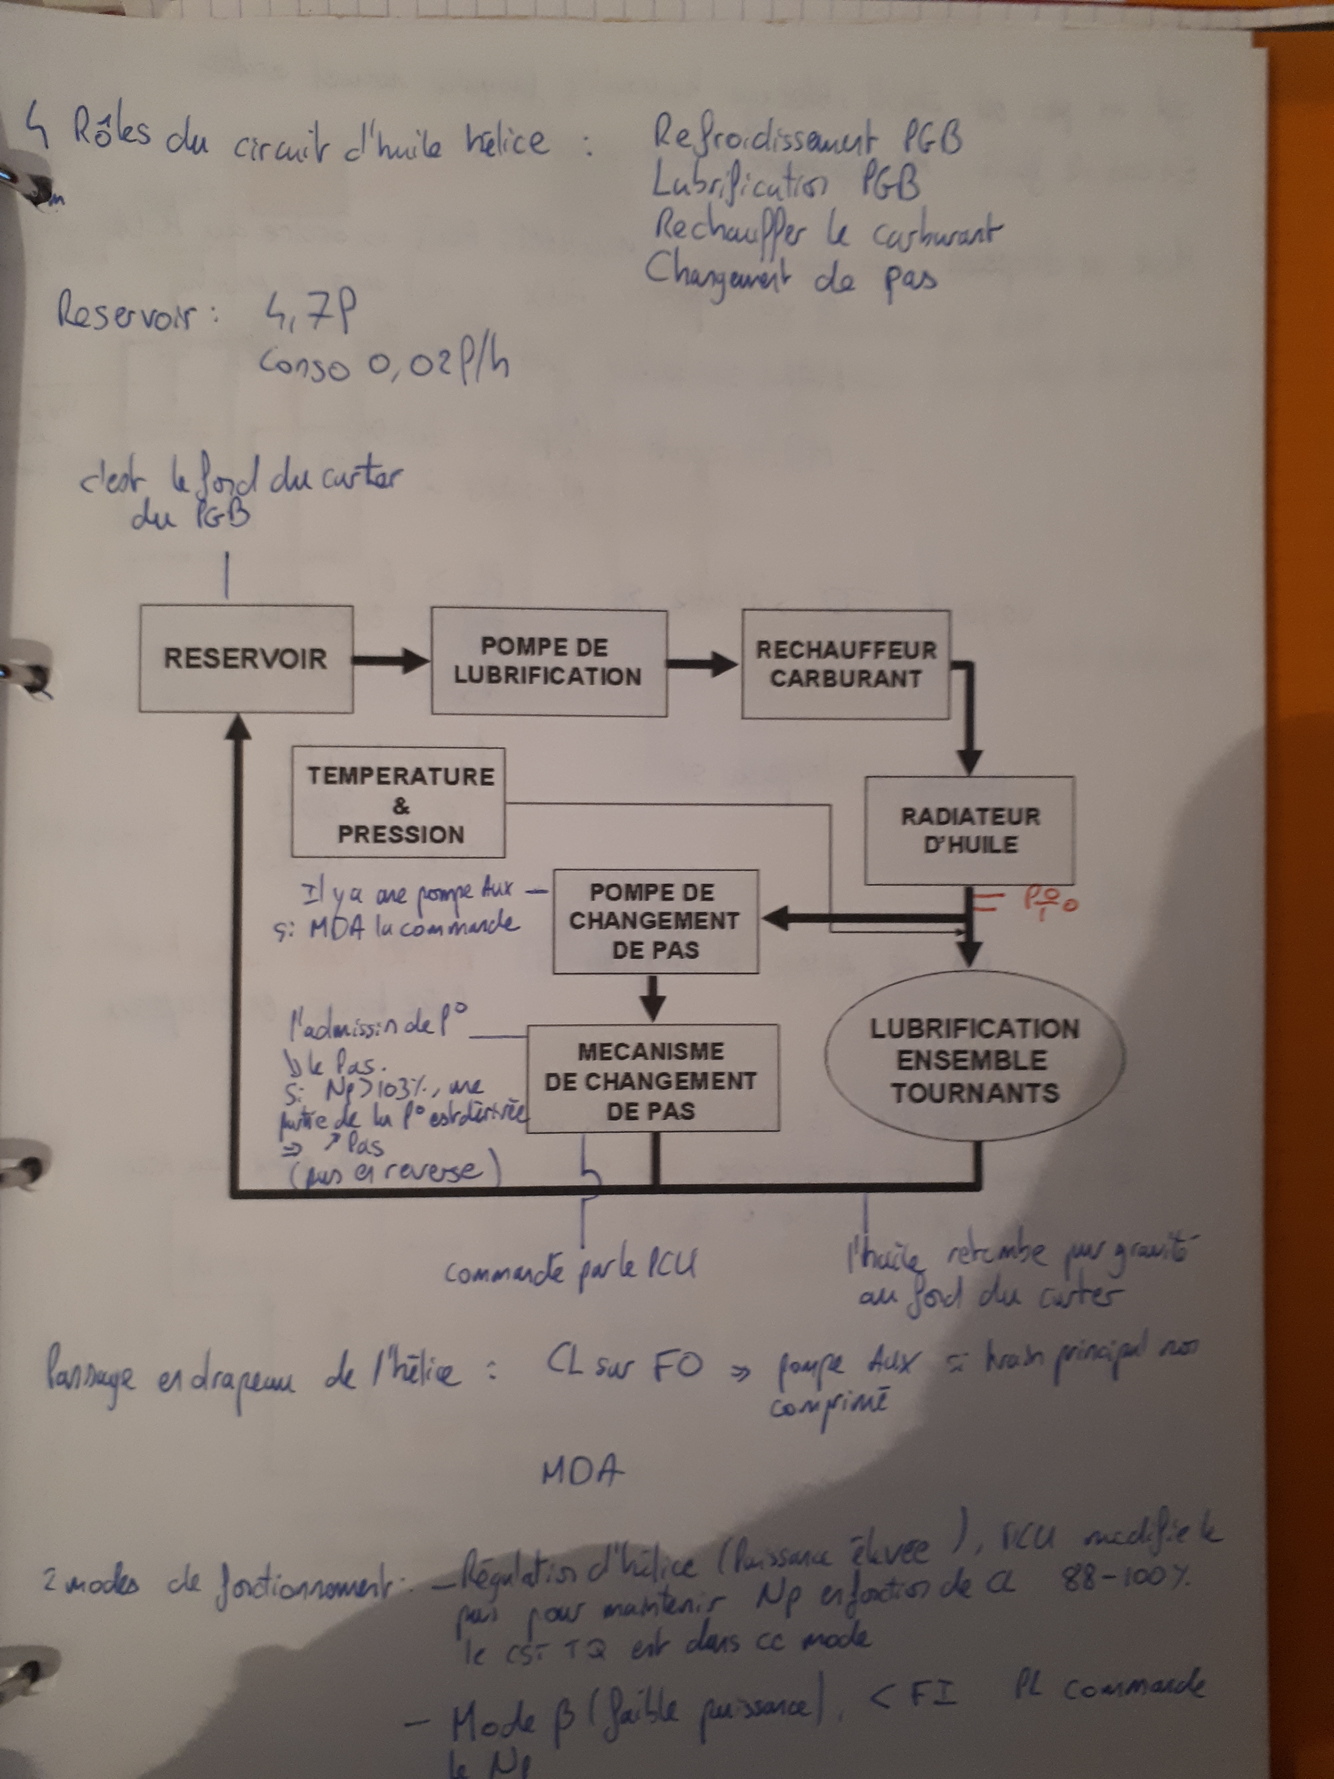 4 Rôles du circuit d'huile hélice : Refroidissement PGB
Lubrification PGB
Rechauffer le carburant
Changement de pas
Reservoir : 4,7l
Conso 0,02l/h
c'est le fond du carter
du PGB
RESERVOIR
POMPE DE
LUBRIFICATION
RECHAUFFEUR
CARBURANT
TEMPERATURE
&
PRESSION
RADIATEUR
D'HUILE
Il y a une pompe Aux
si MDA la commande
POMPE DE
CHANGEMENT
DE PAS
l'admission de P°
↘ le Pas.
Si Np > 103%, une
partie de la P° est dérivée
⇒ ↗ Pas
(pas en reverse)
MECANISME
DE CHANGEMENT
DE PAS
LUBRIFICATION
ENSEMBLE
TOURNANTS
commandé par le PCU
l'huile retombe par gravité
au fond du carter
Passage en drapeau de l'hélice : CL sur FO ⇒ pompe Aux si train principal non
comprimé
MDA
2 modes de fonctionnement : - Régulation d'hélice (Puissance élevée), PCU modifie le
pas pour maintenir Np en fonction de CL 88-100%
le CST TQ est dans ce mode
- Mode β (faible puissance), < FI PL commande
le Np